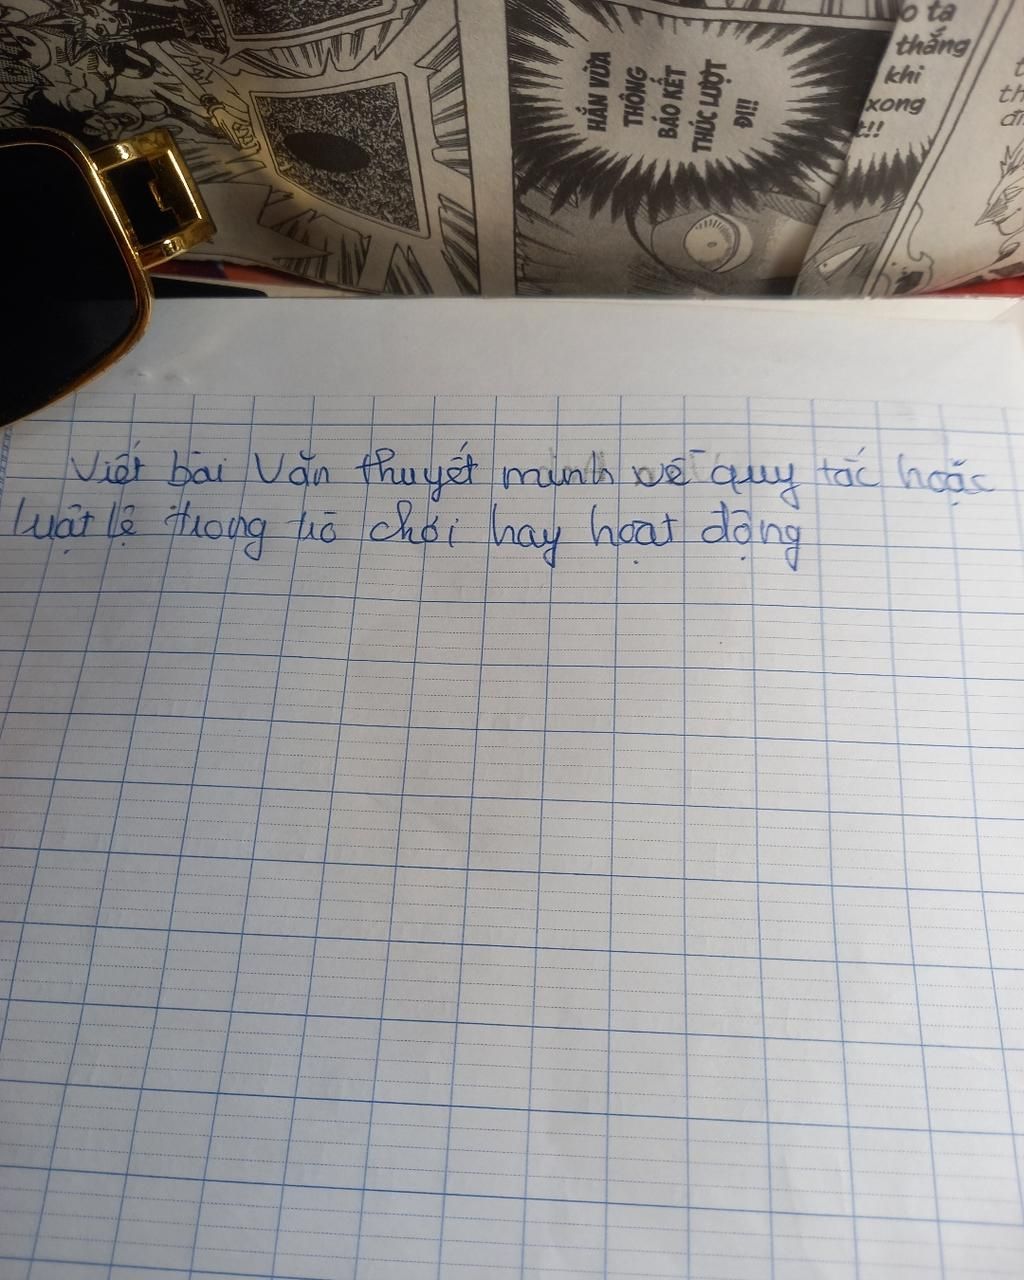 HẮN VỪA
THÔNG
BÁO KẾT
THÚC LƯỢT
ĐI!!!
o ta
thắng
khi
xong
t!!
Viết bài văn thuyết minh về quy tắc hoặc
luật lệ trong trò chơi hay hoạt động